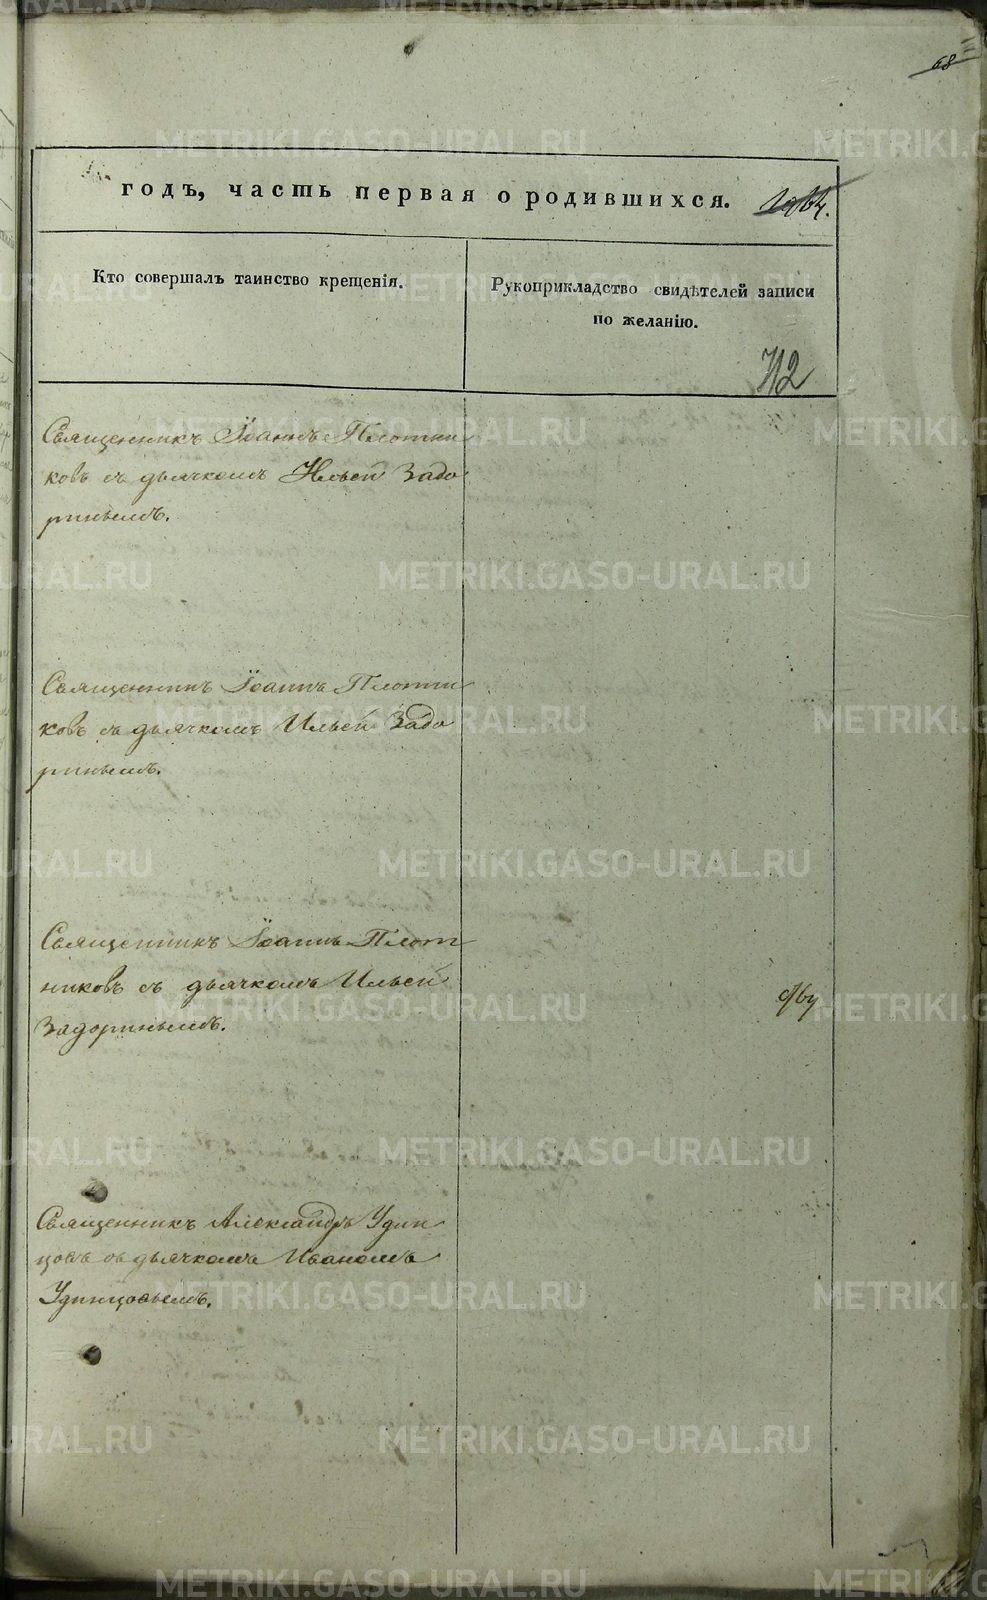 68
годъ, часть первая о родившихся.
Кто совершалъ таинство крещенія.
Рукоприкладство свидѣтелей записи
по желанію.
712
Священникъ Іоаннъ Плотни
ковъ съ дьячкомъ Ильей Задо
ринымъ.
Священникъ Іоаннъ Плотни
ковъ съ дьячкомъ Ильей Задо
ринымъ.
Священникъ Іоаннъ Плот
никовъ съ дьячкомъ Ильей
Задоринымъ.
Священникъ Александръ Удин
цовъ съ дьячкомъ Иваномъ
Удинцовымъ.
METRIKI.GASO-URAL.RU